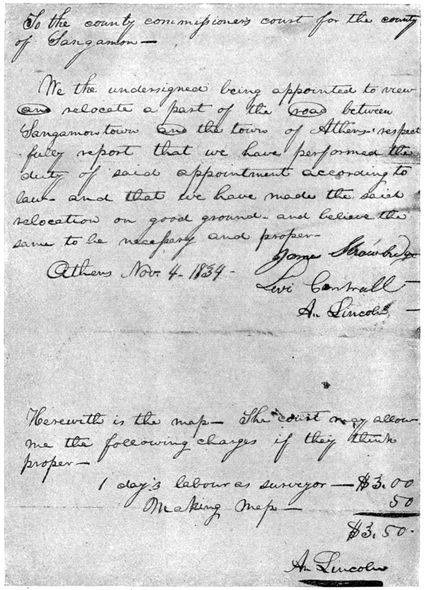 To the county commissioner's court for the county
of Sangamon—
We the undersigned being appointed to view
and relocate a part of the road between
Sangamontown and the town of Athens respect
fully report that we have performed the
duty of said appointment according to
law— and that we have made the said
relocation on good ground— and believe the
same to be necessary and proper—
James Strowbridge
Athens Nov. 4. 1834—
Levi Cantrall—
A. Lincoln—
Herewith is the map— The court may allow
me the following charges if they think
proper—
1 day's labour as surveyor— $3.00
Making map— 50
$3.50—
A. Lincoln